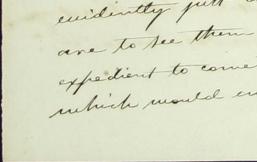 evidently just
are to see them
expedient to come
which would